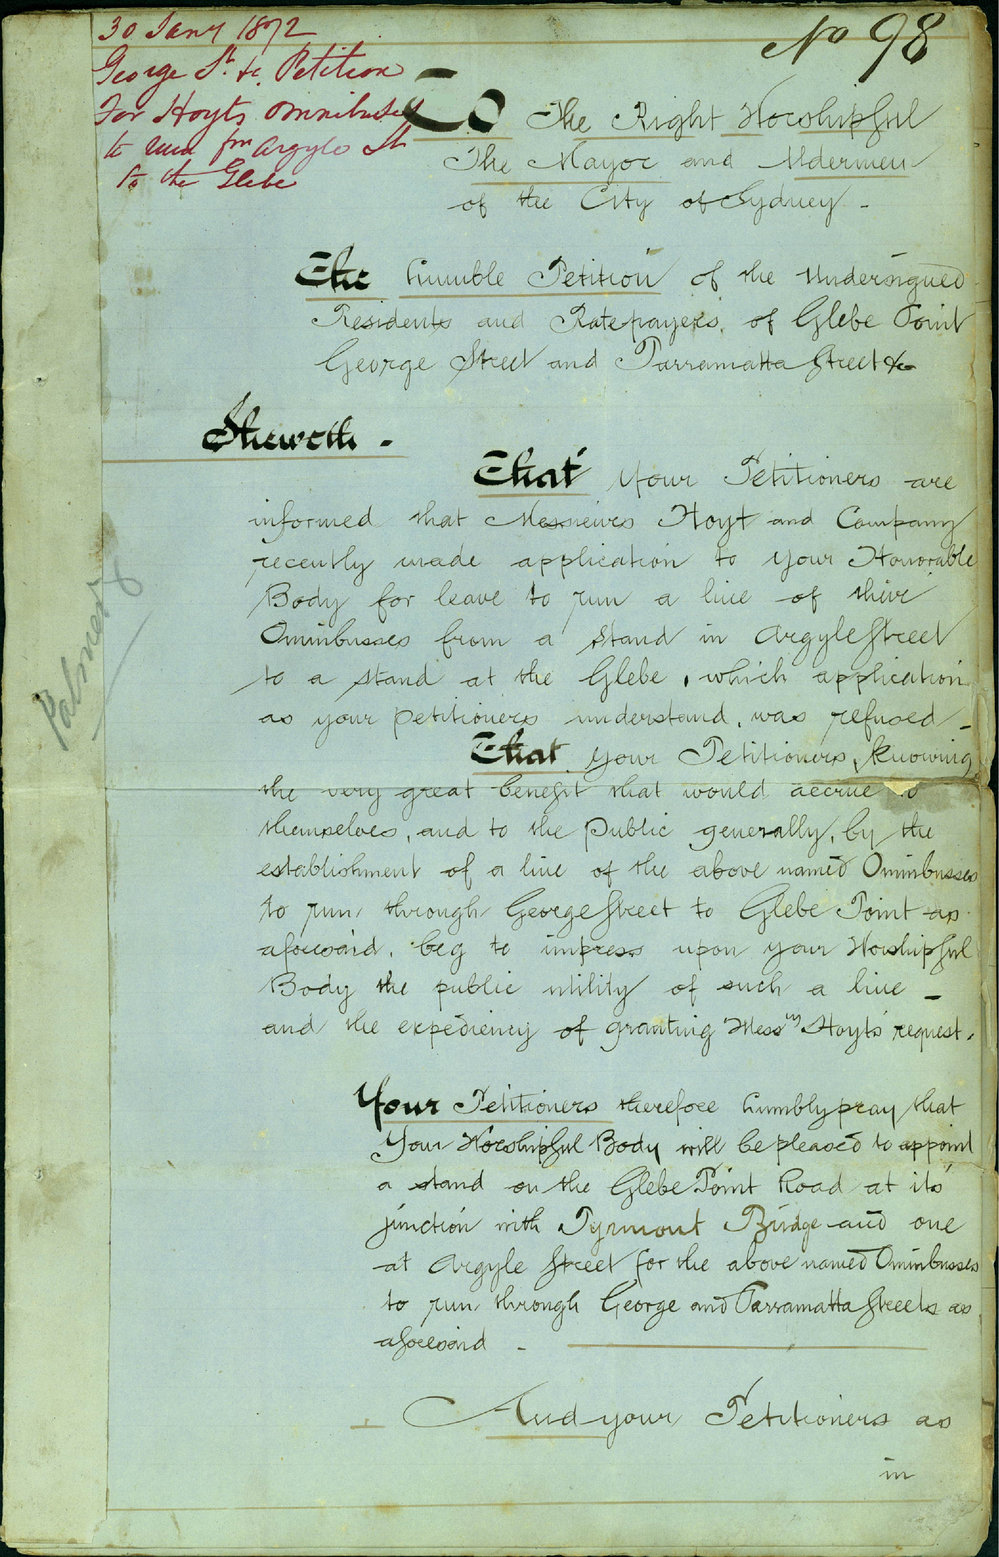 30 Jany 1872
George St. &c. Petition
For Hoyts Omnibuses
to run fm Argyle St
to the Glebe
No 98
To The Right Worshipful
The Mayor and Aldermen
of the City of Sydney -
The humble Petition of the Undersigned
Residents and Ratepayers, of Glebe Point
George Street and Parramatta Street &c
Sheweth -
That your Petitioners are
informed that Messieurs Hoyt and Company
recently made application to your Honorable
Body for leave to run a line of their
Omnibusses from a stand in Argyle Street
to a stand at the Glebe, which application
as your petitioners understand, was refused -
That your Petitioners, knowing
the very great benefit that would accrue to
themselves, and to the public generally, by the
establishment of a line of the above named Omnibusses
to run through George Street to Glebe Point as
aforesaid, beg to impress upon your Worshipful
Body the public utility of such a line -
and the expediency of granting Messrs Hoyts' request.
Your Petitioners therefore humbly pray that
Your Worshipful Body will be pleased to appoint
a stand on the Glebe Point Road at its
junction with Pyrmont Bridge and one
at Argyle Street for the above named Omnibusses
to run through George and Parramatta Streets as
aforesaid -
And your Petitioners as
in